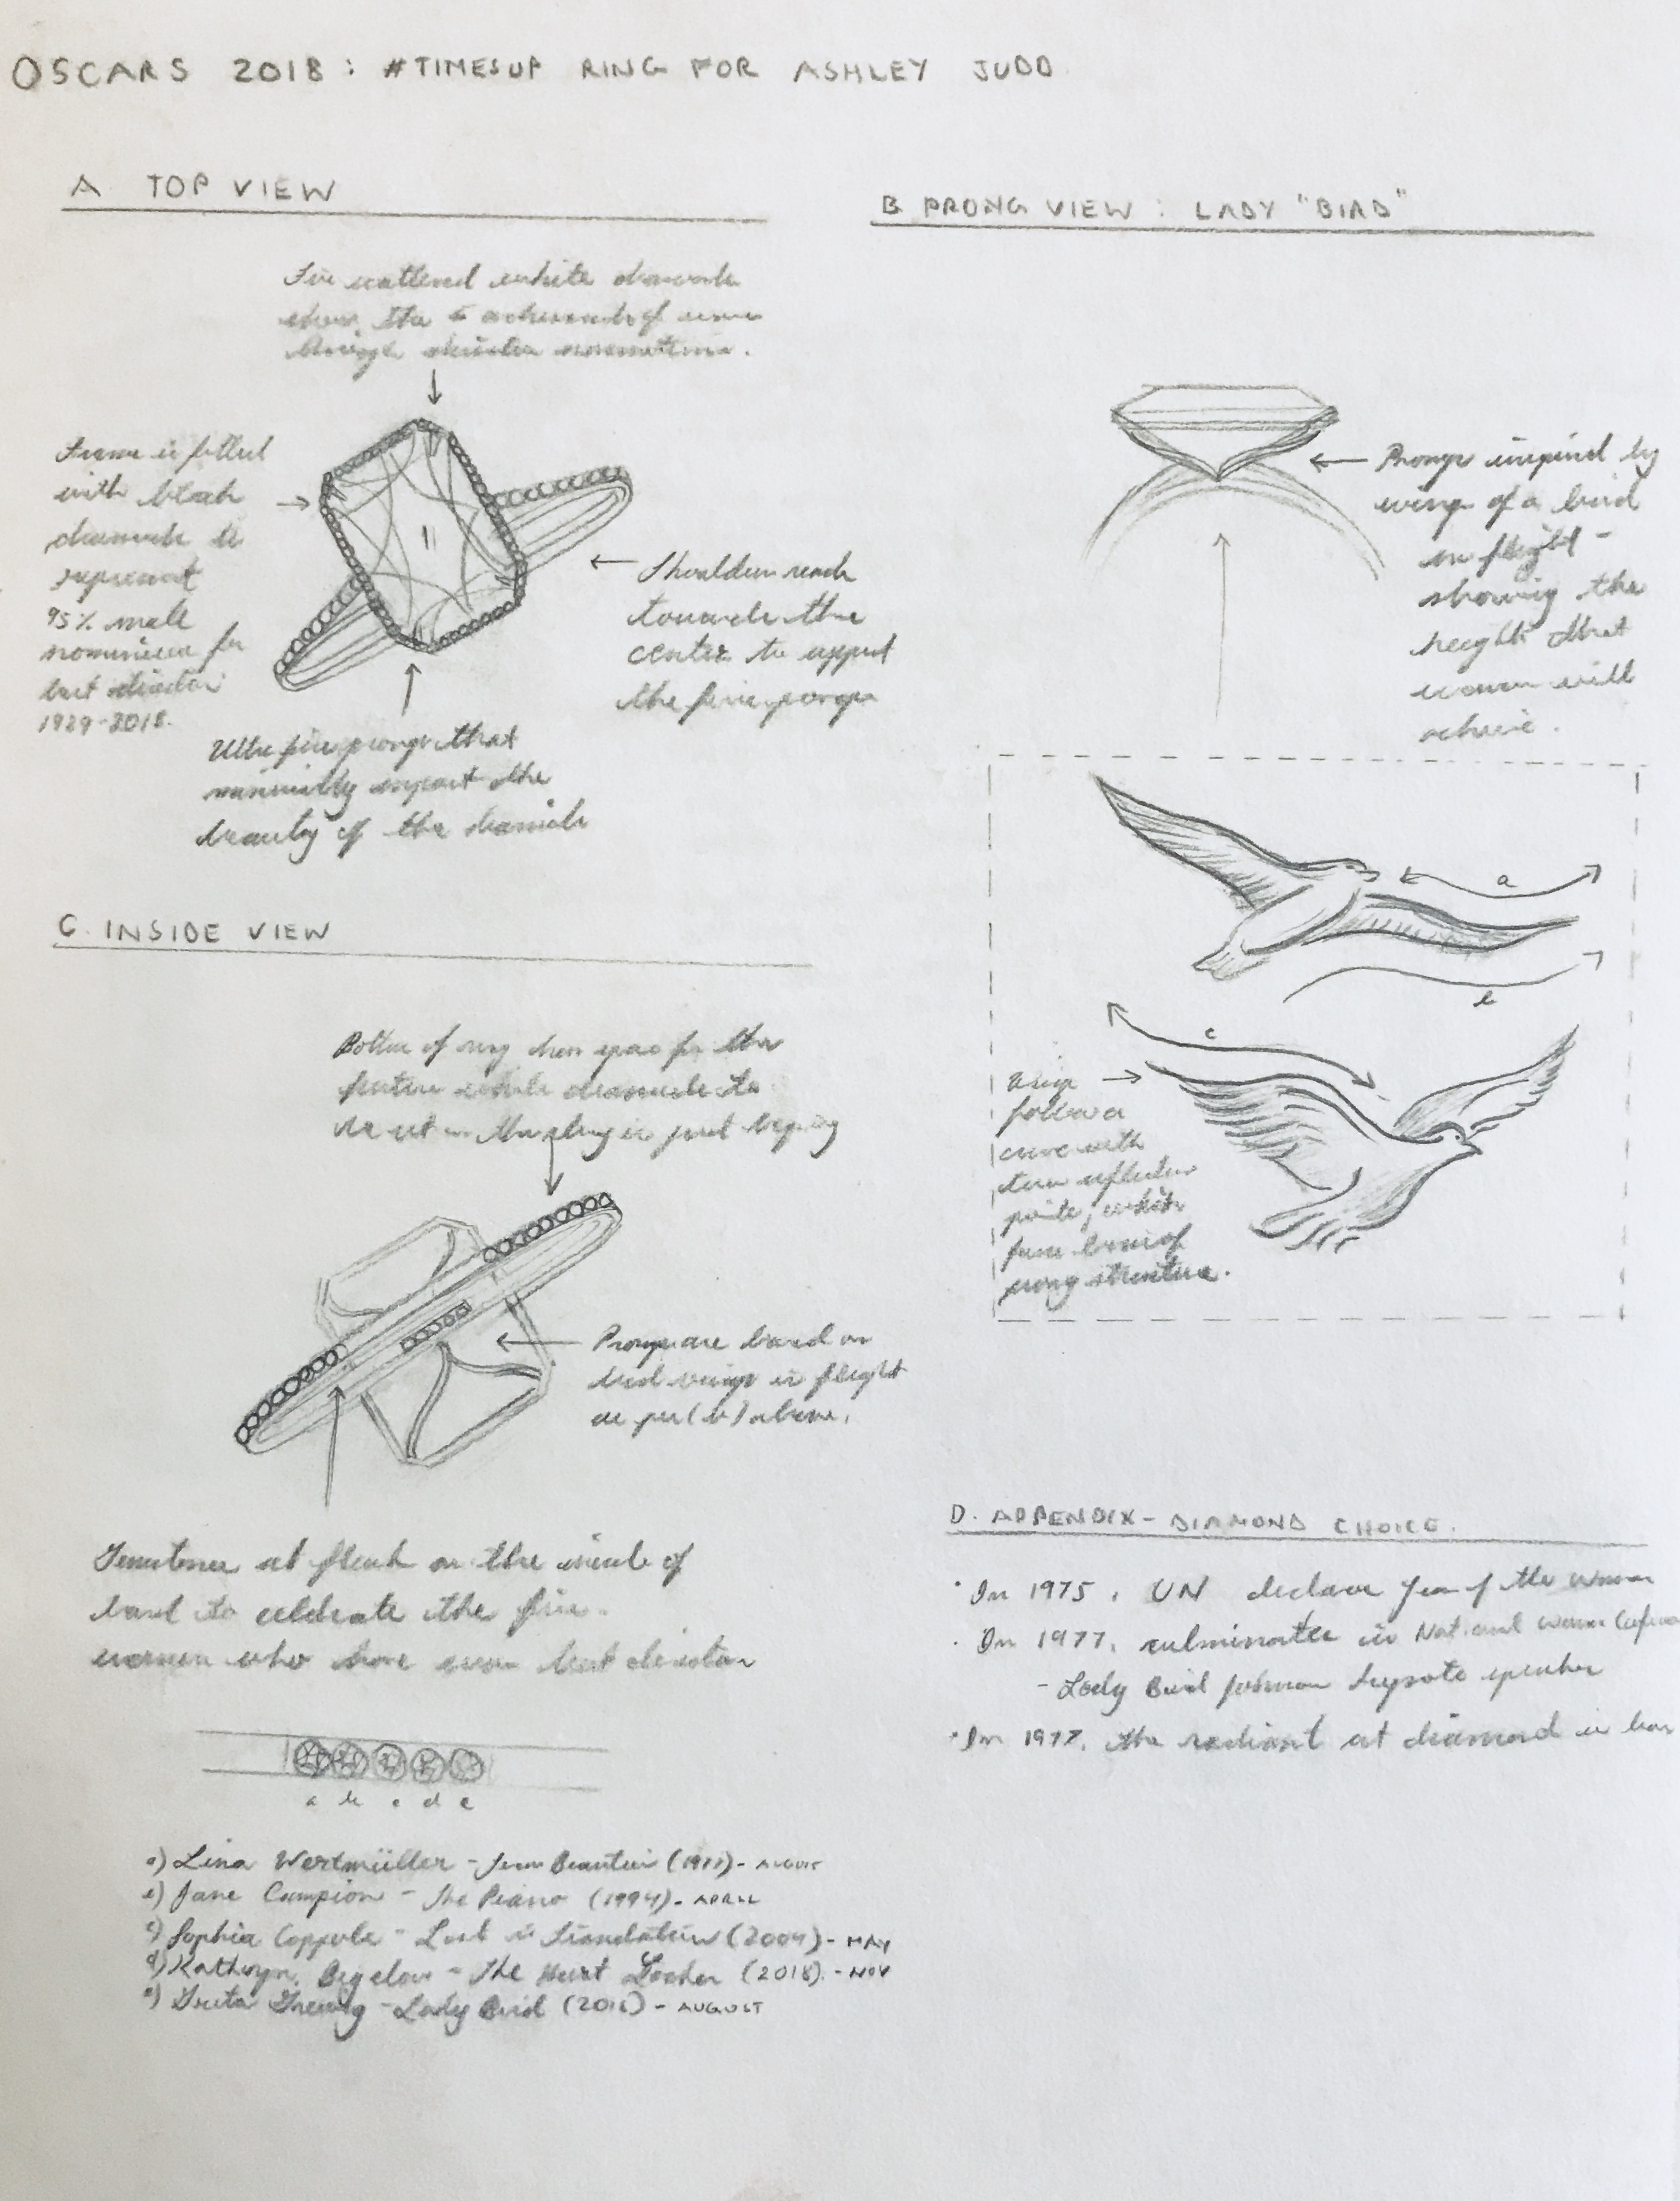 OSCARS 2018: #TIMESUP RING FOR ASHLEY JUDD
A TOP VIEW
Five scattered white diamonds
show the 5 achievements of women
through director nominations.
Frame is filled
with black
diamonds to
represent
95% male
nominees for
best director
1929-2018.
Shoulders reach
towards the
center to support
the fine prongs
Ultra fine prongs that
minimally impact the
beauty of the diamonds
B PRONG VIEW: LADY "BIRD"
Prongs inspired by
wings of a bird
in flight -
showing the
heights that
women will
achieve.
a
b
c
Wings
follow a
curve with
two inflection
points, which
form basis of
prong structure.
C. INSIDE VIEW
Bottom of ring shows space for the
future white diamonds to
be set as the story is just beginning
Prongs are based on
bird wings in flight
as per (b) above.
Gemstones set flush on the inside of
band to celebrate the five
women who have won best director
a b c d e
a) Lina Wertmüller - Seven Beauties (1977) - AUGUST
b) Jane Campion - The Piano (1994) - APRIL
c) Sophia Coppola - Lost in Translation (2004) - MAY
d) Kathryn Bigelow - The Hurt Locker (2018) - NOV
e) Greta Gerwig - Lady Bird (2018) - AUGUST
D. APPENDIX - DIAMOND CHOICE.
· In 1975, UN declare Year of the Woman
· In 1977, culminates in National Women
- Lady Bird Johnson keynote speaker
· In 1977, the radiant cut diamond is